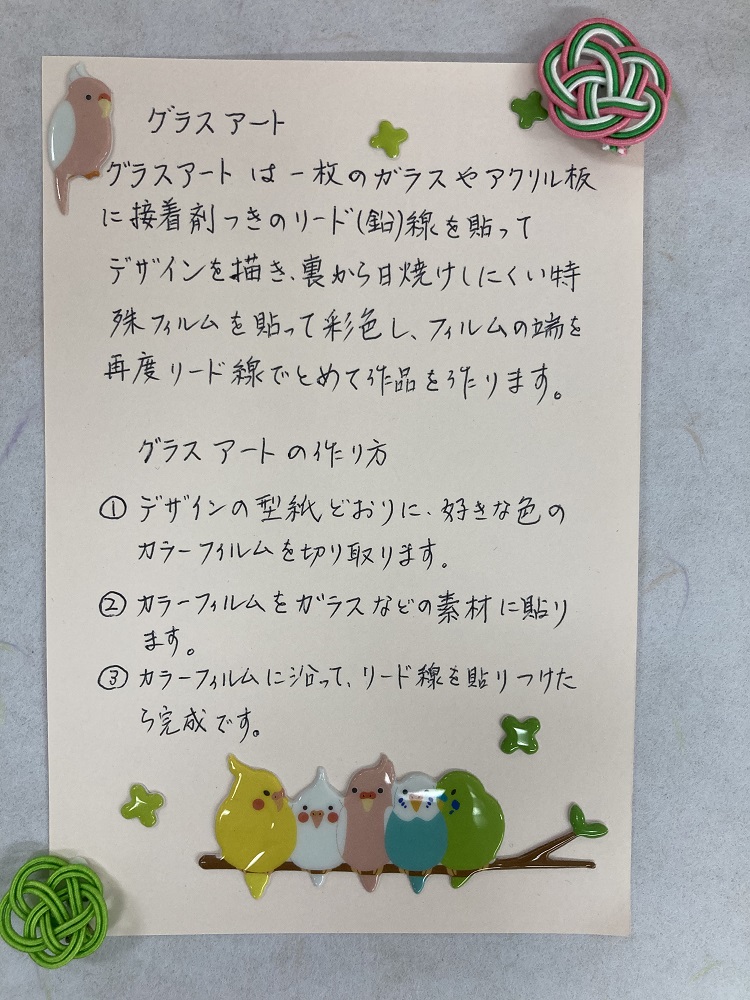 グラスアート
グラスアートは一枚のガラスやアクリル板
に接着剤つきのリード(鉛)線を貼って
デザインを描き、裏から日焼けしにくい特
殊フィルムを貼って彩色し、フィルムの端を
再度リード線でとめて作品を作ります。
グラスアートの作り方
① デザインの型紙どおりに、好きな色の
カラーフィルムを切り取ります。
② カラーフィルムをガラスなどの素材に貼り
ます。
③ カラーフィルムに沿って、リード線を貼りつけた
ら完成です。